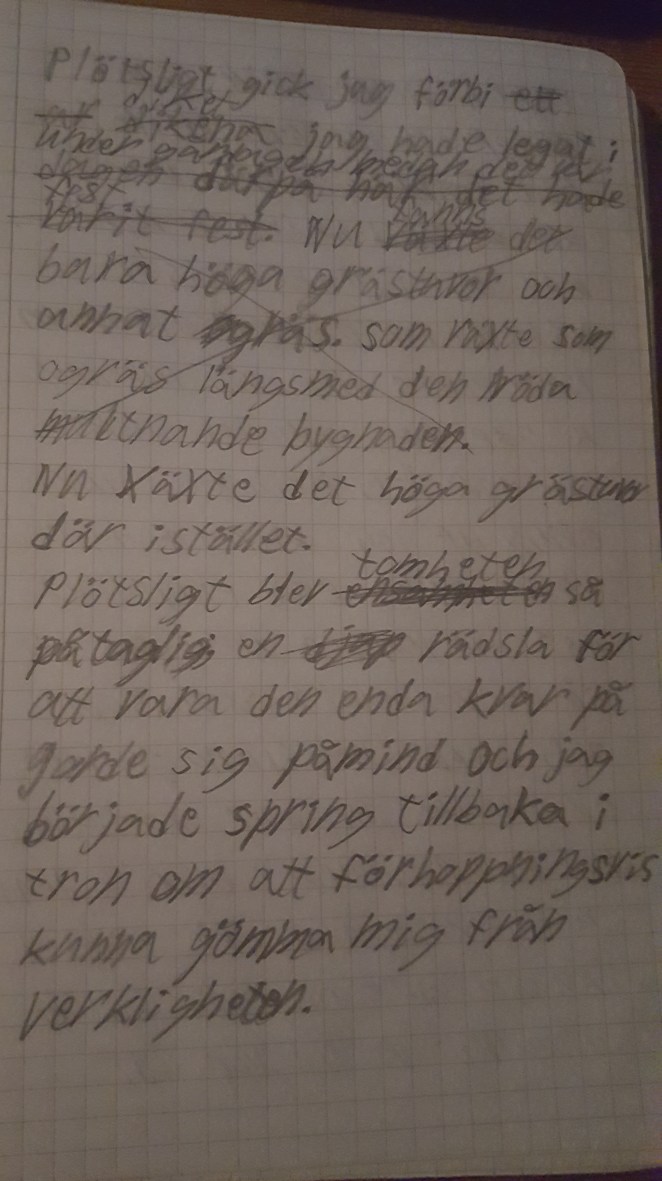 Plötsligt gick jag förbi ett
diket
av dikena jag hade legat i
under gårdagen medan det var
dagen därpå när det hade
fest
varit fest. Nu fanns det
bara höga grästuvor och
annat ogräs. som växte som
ogräs längsmed den röda
multnande bygnaden.
Nu växte det höga grästuvor
där istället.
tomheten
Plötsligt blev ensamheten så
påtaglig en djup rädsla för
att vara den enda kvar på
gorde sig påmind och jag
började spring tillbaka i
tron om att förhoppningsvis
kunna gömma mig från
verkligheten.